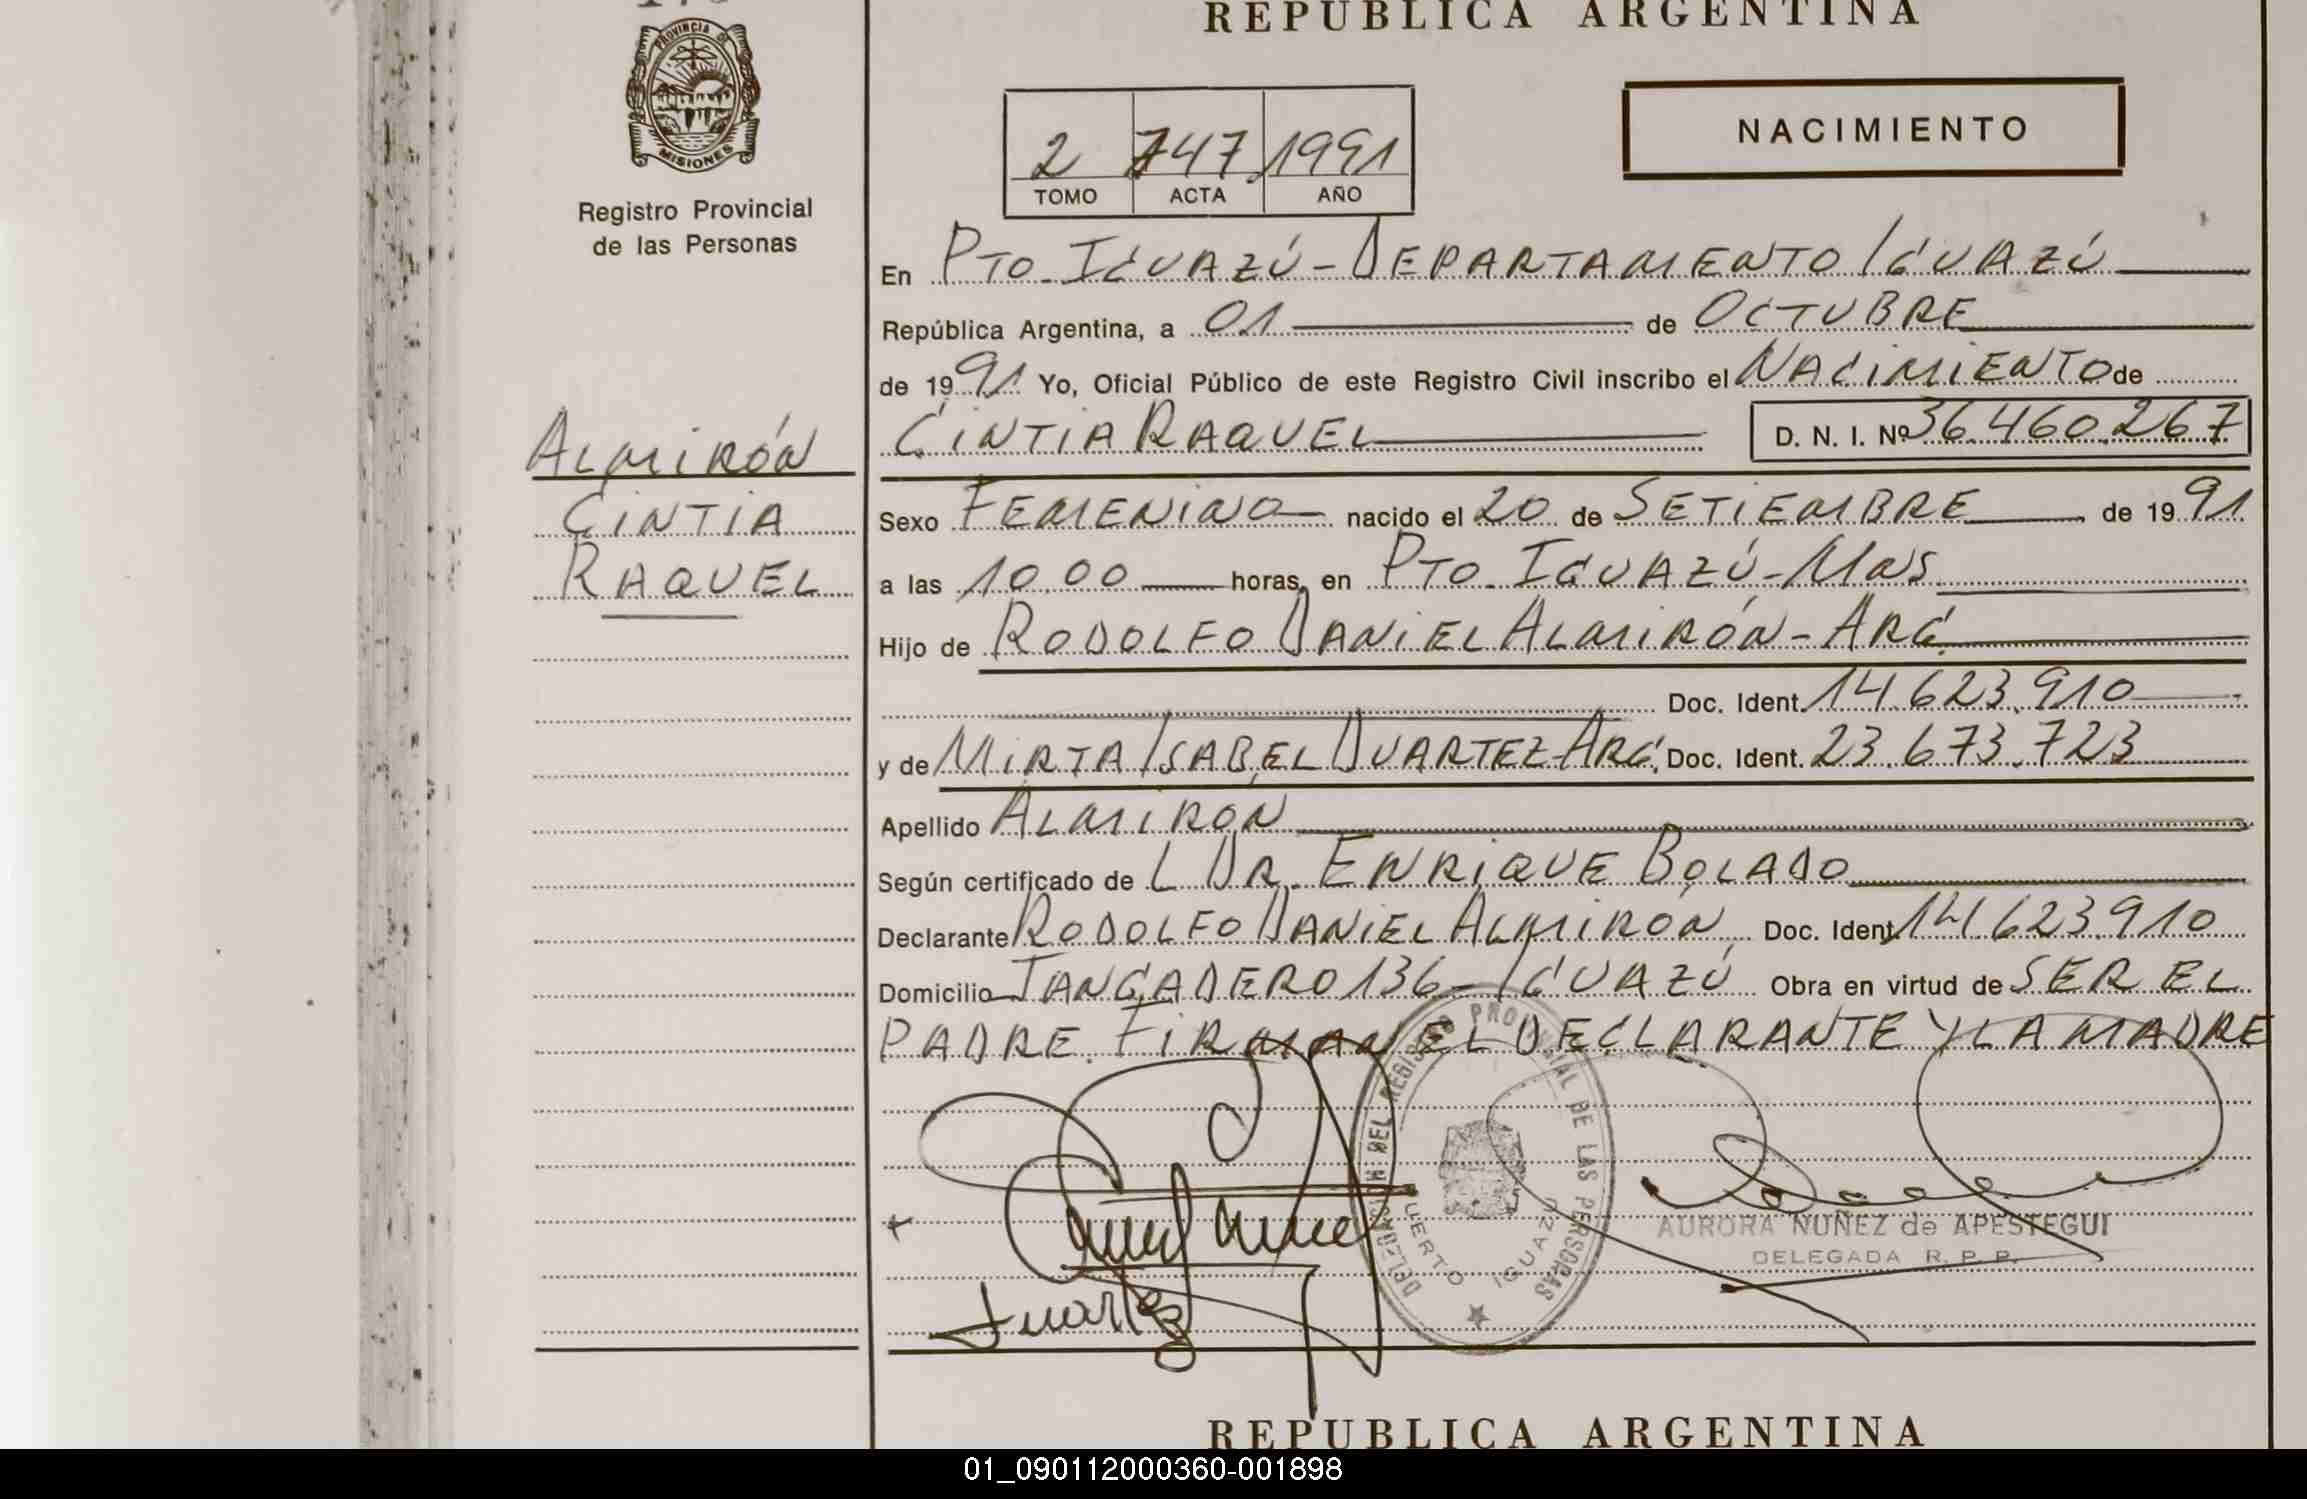 REPUBLICA ARGENTINA
PROVINCIA DE
MISIONES
Registro Provincial
de las Personas
2 747 1991
TOMO ACTA AÑO
NACIMIENTO
En PTO. IGUAZÚ - DEPARTAMENTO IGUAZÚ
República Argentina, a 01 de OCTUBRE
de 1991 Yo, Oficial Público de este Registro Civil inscribo el NACIMIENTO de
CINTIA RAQUEL D. N. I. Nº 36.460.267
ALMIRÓN
CINTIA
RAQUEL
Sexo FEMENINO nacido el 20 de SETIEMBRE de 1991
a las 10.00 horas, en PTO. IGUAZÚ - Mns
Hijo de RODOLFO DANIEL ALMIRÓN - ARG.
Doc. Ident. 14.623.910
y de MIRTA ISABEL DUARTEZ - ARG. Doc. Ident. 23.673.723
Apellido ALMIRON
Según certificado de L DR. ENRIQUE BOLADO
Declarante RODOLFO DANIEL ALMIRÓN Doc. Ident. 14.623.910
Domicilio TANGADERO 136 - IGUAZÚ Obra en virtud de SER EL
PADRE. FIRMAN EL DECLARANTE Y LA MADRE
DELEGACION DEL REGISTRO PROVINCIAL DE LAS PERSONAS
PUERTO IGUAZU
AURORA NUÑEZ de APESTEGUI
DELEGADA R. P. P.
Duartez
REPUBLICA ARGENTINA
01_090112000360-001898